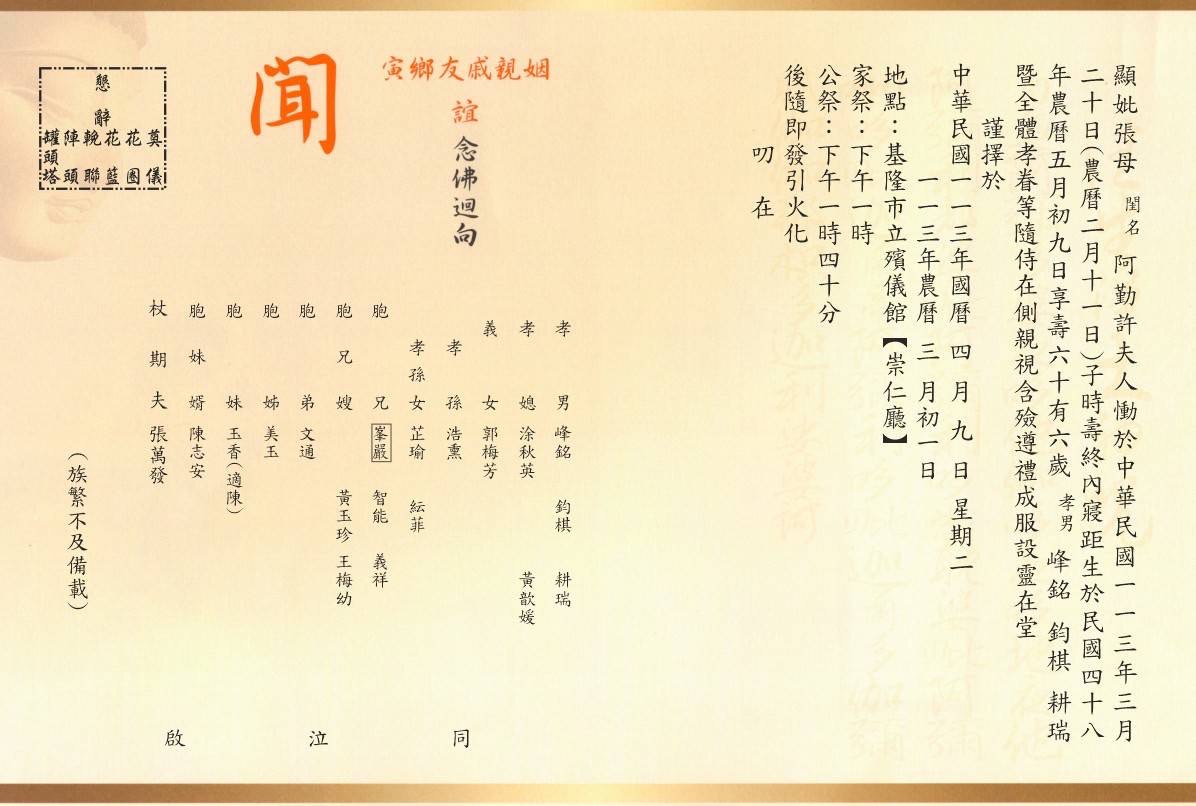 顯妣張母 閨名 阿勤許夫人慟於中華民國一一三年三月
二十日(農曆二月十一日)子時壽終內寢距生於民國四十八
年農曆五月初九日享壽六十有六歲 孝男 峰銘 鈞棋 耕瑞
暨全體孝眷等隨侍在側親視含殮遵禮成服設靈在堂
謹擇於
中華民國一一三年國曆 四月九日 星期二
一一三年農曆 三月初一日
地點：基隆市立殯儀館【崇仁廳】
家祭：下午一時
公祭：下午一時四十分
後隨即發引火化
叨在
姻親戚友鄉寅
誼 念佛迴向
聞
孝男 峰銘 鈞棋 耕瑞
孝媳 涂秋英 黃歆媛
義女 郭梅芳
孝孫 浩熏
孝孫女 芷瑜 紜菲
胞兄 峯嚴 智能 義祥
胞兄嫂 黃玉珍 王梅幼
胞弟 文通
胞姊 美玉
胞妹 玉香(適陳)
胞妹婿 陳志安
杖期夫 張萬發
(族繁不及備載)
同泣啟
懇辭
奠儀
花圈
花籃
輓聯
陣頭
罐頭塔